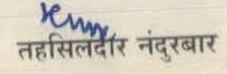 तहसिलदार नंदुरबार